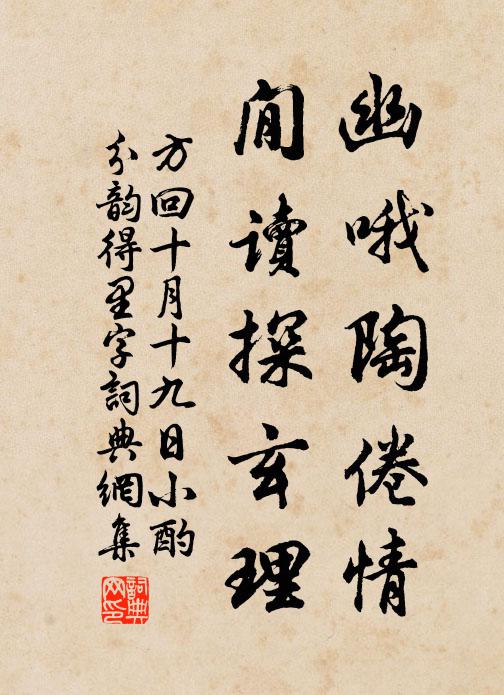 幽哦陶倦情
閒讀探玄理
方回十月十九日小酌
分韵得里字詞典網集
詞典網印